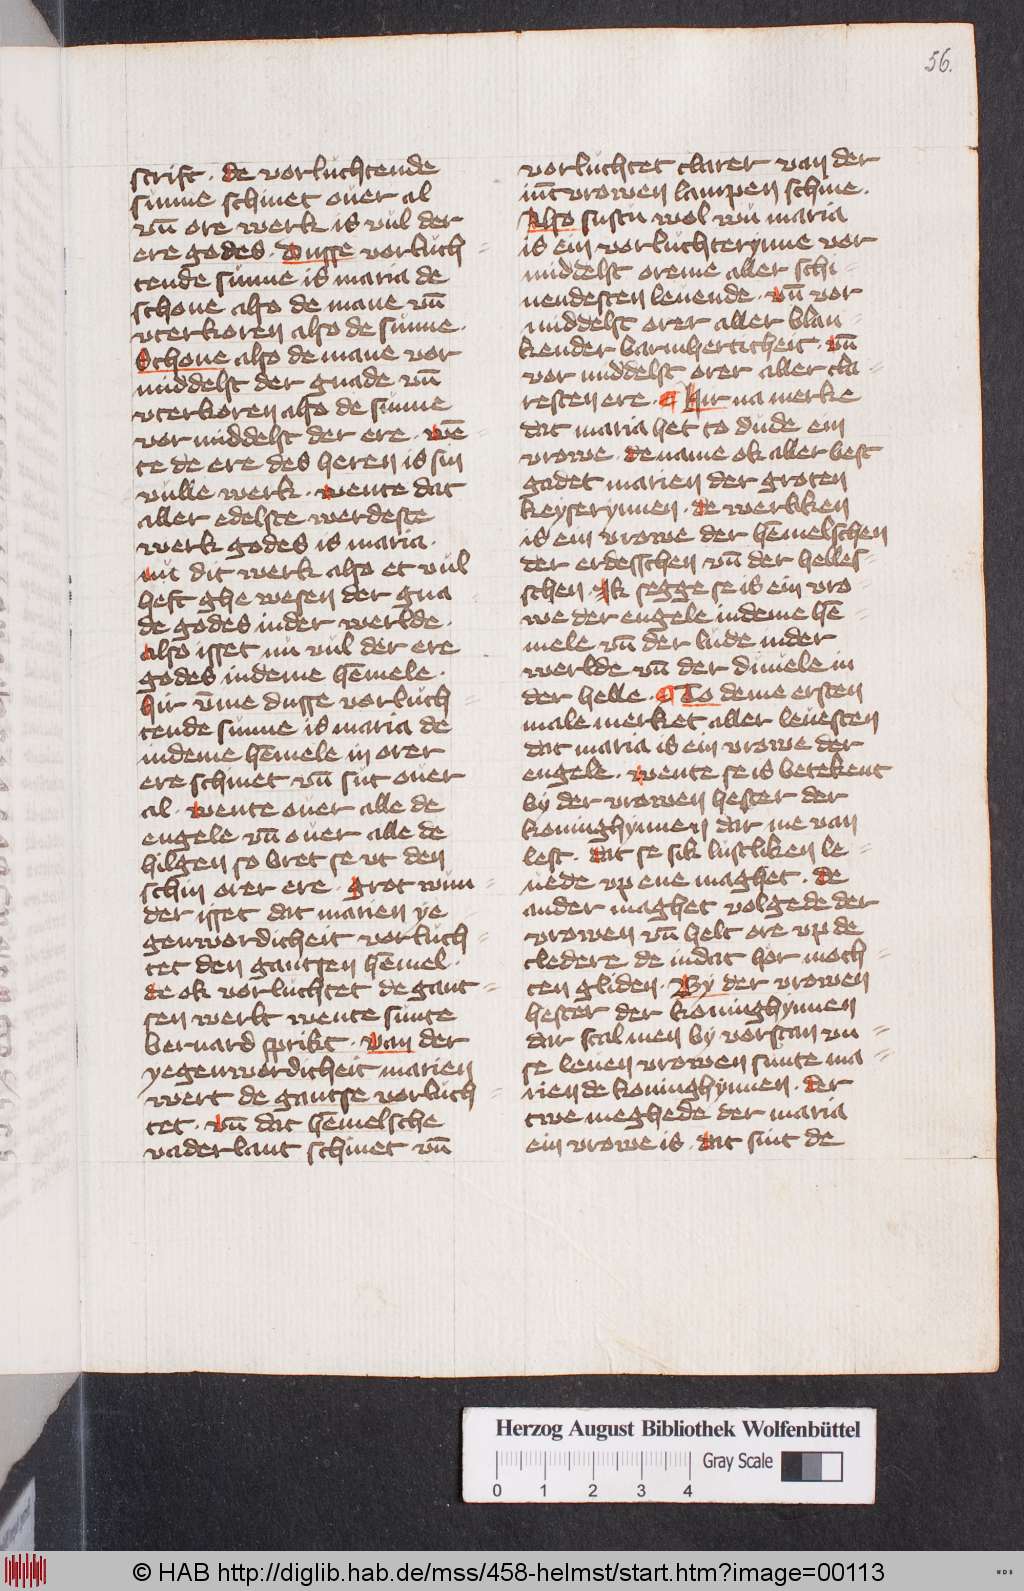 56.
scrift . de vorluchtende
sunne schinet ouer al
vn̄ ore werk is vul der
ere godes . Dusse vorluch=
tende sunne is maria de
schone also de mane vn̄
vterkoren also de sunne .
Schone also de mane vor
middelst der gnade vn̄
vterkoren also de sunne
vor middelst der ere . wē=
te de ere des heren is sin
vulle werk . wente dat
aller edelste werdeste
werk godes is maria .
nu dit werk also et vul
heft ghe wesen der gna
de godes in der werlde .
also isset nu vul der ere
godes in deme hēmele .
Hir v̄me dusse vorluch=
tende sunne is maria de
in deme hēmele in orer
ere schinet vn̄ sut ouer
al . wente ouer alle de
engele vn̄ ouer alle de
hilgen so bret se vt den
schin orer ere . grot wun=
der isset dat marien ye
genwordicheit vorluch=
tet den gantsen hēmel .
de ok vorluchtet de gant=
sen werlt wente sunte
bernard sprikt . Van der
yegenwordicheit marien
wert de gantse vorluch=
tet . vn̄ dat hēmelsche
vaderlant schinet vn̄
vorluchtet clarer van der
iūc vrowen lampen schine .
Also sustu wol wu maria
is ein vorluchterynne vor
middelst oreme aller schi=
nendesten leuende . vn̄ vor
middelst orer aller blan=
kender barmherticheit . vn̄
vor middelst orer aller cla=
resten ere . ¶ Hir na merke
dat maria het to dude ein
vrowe . de name ok aller best
godet marien der groten
keyserynnen . de werliken
is ein vrowe der hēmelschen
der erdesschen vn̄ der helles=
schen . Ik segge se is ein vro=
we der engele in deme hē=
mele vn̄ der lude in der
werlde vn̄ der diuele in
der helle . ¶ To deme ersten
male merket aller leuesten
dat maria is ein vrowe der
engele . wente se is betekent
by der vrowen hester der
koninghynnen dar me van
lest . dat se sik lustliken le=
nede vp ene maghet . de
ander maghet volgede der
vrowen vn̄ helt ore vp de
cledere de in dat hor moch=
ten gliden . By der vrowen
hester der koninghynnen
dar scal men by vorstan vn=
se leuen vrowen sunte ma=
rien de koninghynnen . der
twe meghede der maria
ein vrowe is . dat sint de
Herzog August Bibliothek Wolfenbüttel
Gray Scale
0 1 2 3 4
© HAB http://diglib.hab.de/mss/458-helmst/start.htm?image=00113